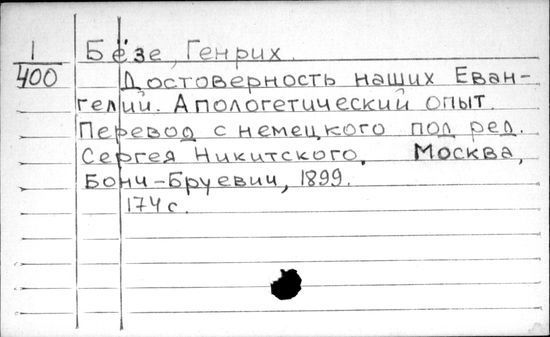 1
400
Бёзе, Генрих.
Достоверность наших Еван-
гелий. Апологетический опыт.
Перевод с немецкого под ред.
Сергея Никитского. Москва,
Бонч-Бруевич, 1899.
174 с.